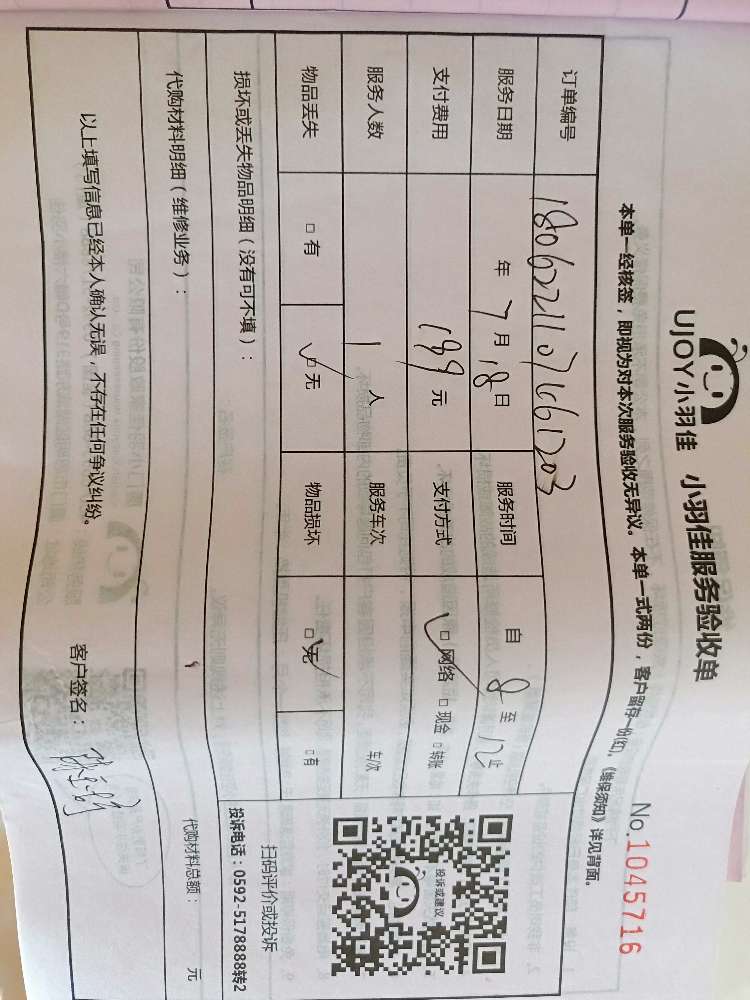 UJOY小羽佳 小羽佳服务验收单
No.1045716
本单一经核签，即视为对本次服务验收无异议。本单一式两份，客户留存一份(红)，《维保须知》详见背面。
订单编号
服务日期 年 7 月 18 日 服务时间 自 8 至 12 止
支付费用 199 元 支付方式 □ 网络 □ 现金 □ 转账
服务人数 1 人 服务车次 车次
物品丢失 □ 有 □ 无 物品损坏 □ 无 □ 有
损坏或丢失物品明细（没有可不填）：
代购材料明细（维修业务）：
代购材料总额： 元
投诉或建议
扫码评价或投诉
投诉电话：0592-5178888转2
以上填写信息已经本人确认无误，不存在任何争议纠纷。
客户签名：